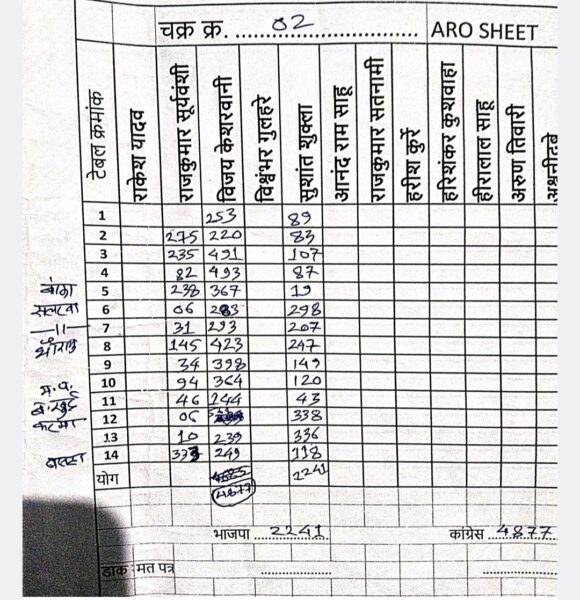 चक्र क्र. 02 ARO SHEET
टेबल क्रमांक राकेश यादव राजकुमार सूर्यवंशी विजय केशरवानी विश्वंभर गुलहरे सुशांत शुक्ला आनंद राम साहू राजकुमार सतनामी हरीश कुर्रे हरिशंकर कुशवाहा हीरालाल साहू अरुण तिवारी
1 253 89
2 275 220 83
3 235 491 107
4 82 493 87
5 238 367 19
6 06 283 298
7 31 293 207
8 145 423 247
9 34 398 149
10 94 364 120
11 46 244 43
12 06 338
13 10 239 336
14 333 249 118
योग 2241
4877
भाजपा 2241 कांग्रेस 4877
डाक मत पत्र